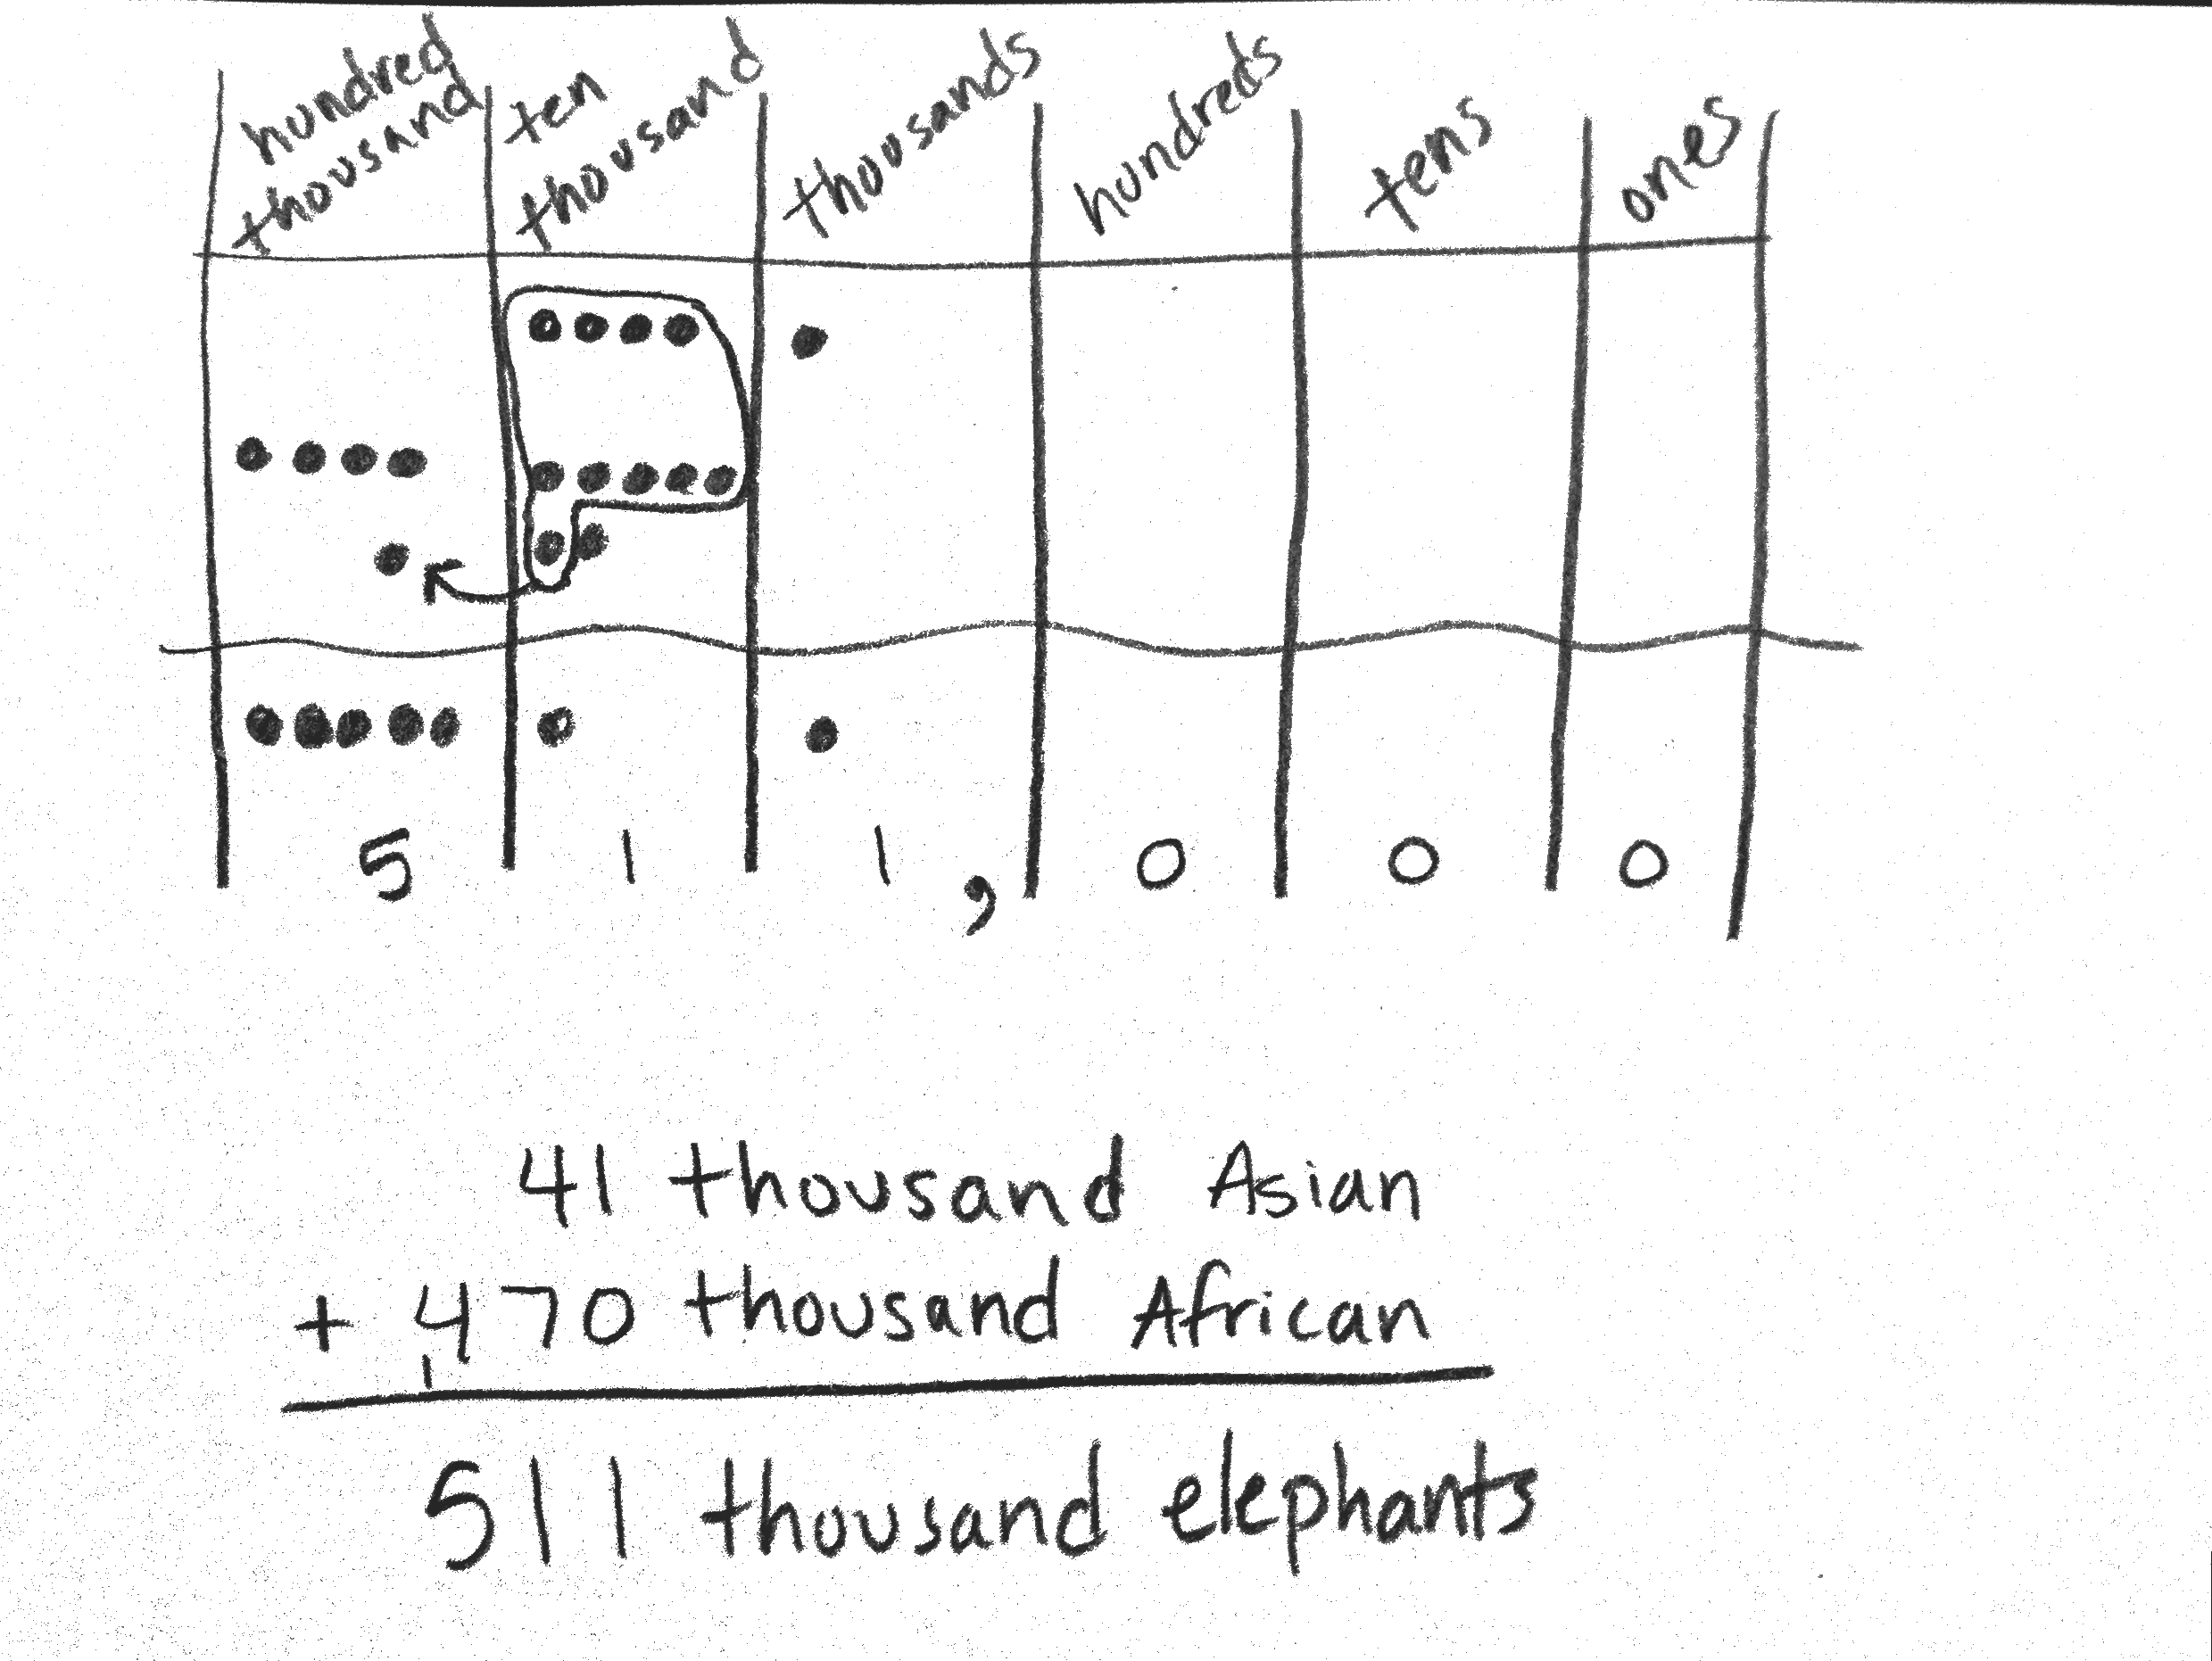 hundred thousand
ten thousand
thousands
hundreds
tens
ones
5 1 1 , 0 0 0
41 thousand Asian
+ 470 thousand African
1
511 thousand elephants